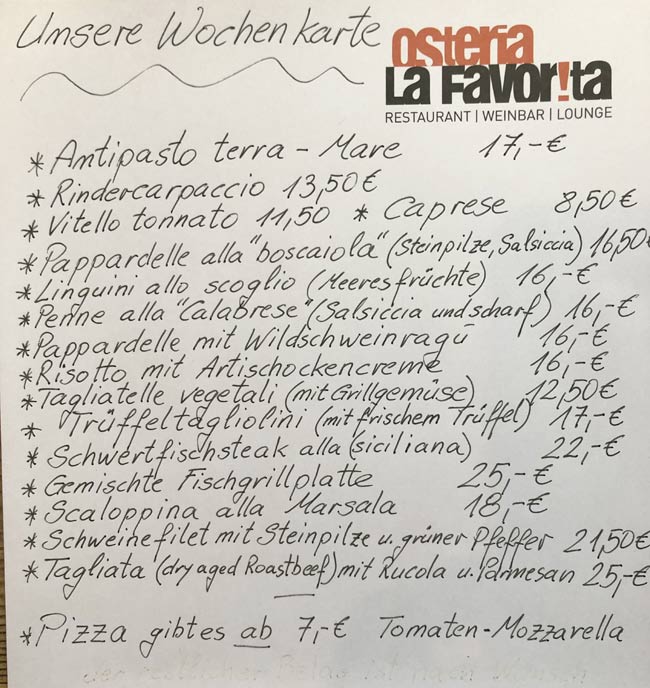 Unsere Wochenkarte
osteria
La Favor!ta
RESTAURANT | WEINBAR | LOUNGE
* Antipasto terra - Mare 17,-€
* Rindercarpaccio 13,50€
* Vitello tonnato 11,50 * Caprese 8,50€
* Pappardelle alla "boscaiola" (Steinpilze, Salsiccia) 16,50€
* Linguini allo scoglio (Meeresfrüchte) 16,-€
* Penne alla "Calabrese" (Salsiccia und scharf) 16,-€
* Pappardelle mit Wildschweinragú 16,-€
* Risotto mit Artischockencreme 16,-€
* Tagliatelle vegetali (mit Grillgemüse) 12,50€
* Trüffeltagliolini (mit frischem Trüffel) 17,-€
* Schwertfischsteak alla (siciliana) 22,-€
* Gemischte Fischgrillplatte 25,-€
* Scaloppina alla Marsala 18,-€
* Schweinefilet mit Steinpilze u. grüner Pfeffer 21,50€
* Tagliata (dry aged Roastbeef) mit Rucola u. Parmesan 25,-€
* Pizza gibt es ab 7,-€ Tomaten-Mozzarella
der restlicher Belag ist nach Wunsch